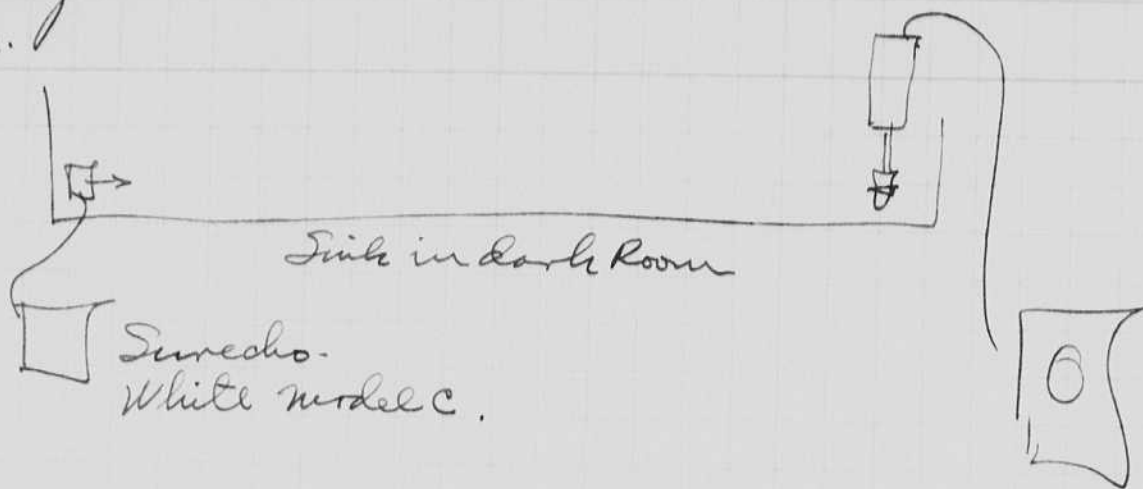 Sink in dark Room
Surecho.
White model C.